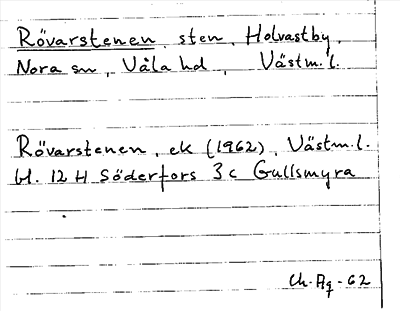 Rövarstenen, sten, Holvastby,
Nora sn, Våla hd, Västm. l.
Rövarstenen, ek (1962), Västm. l.
bl. 12 H Söderfors 3 c Gullsmyra
Ch. Ag - 62